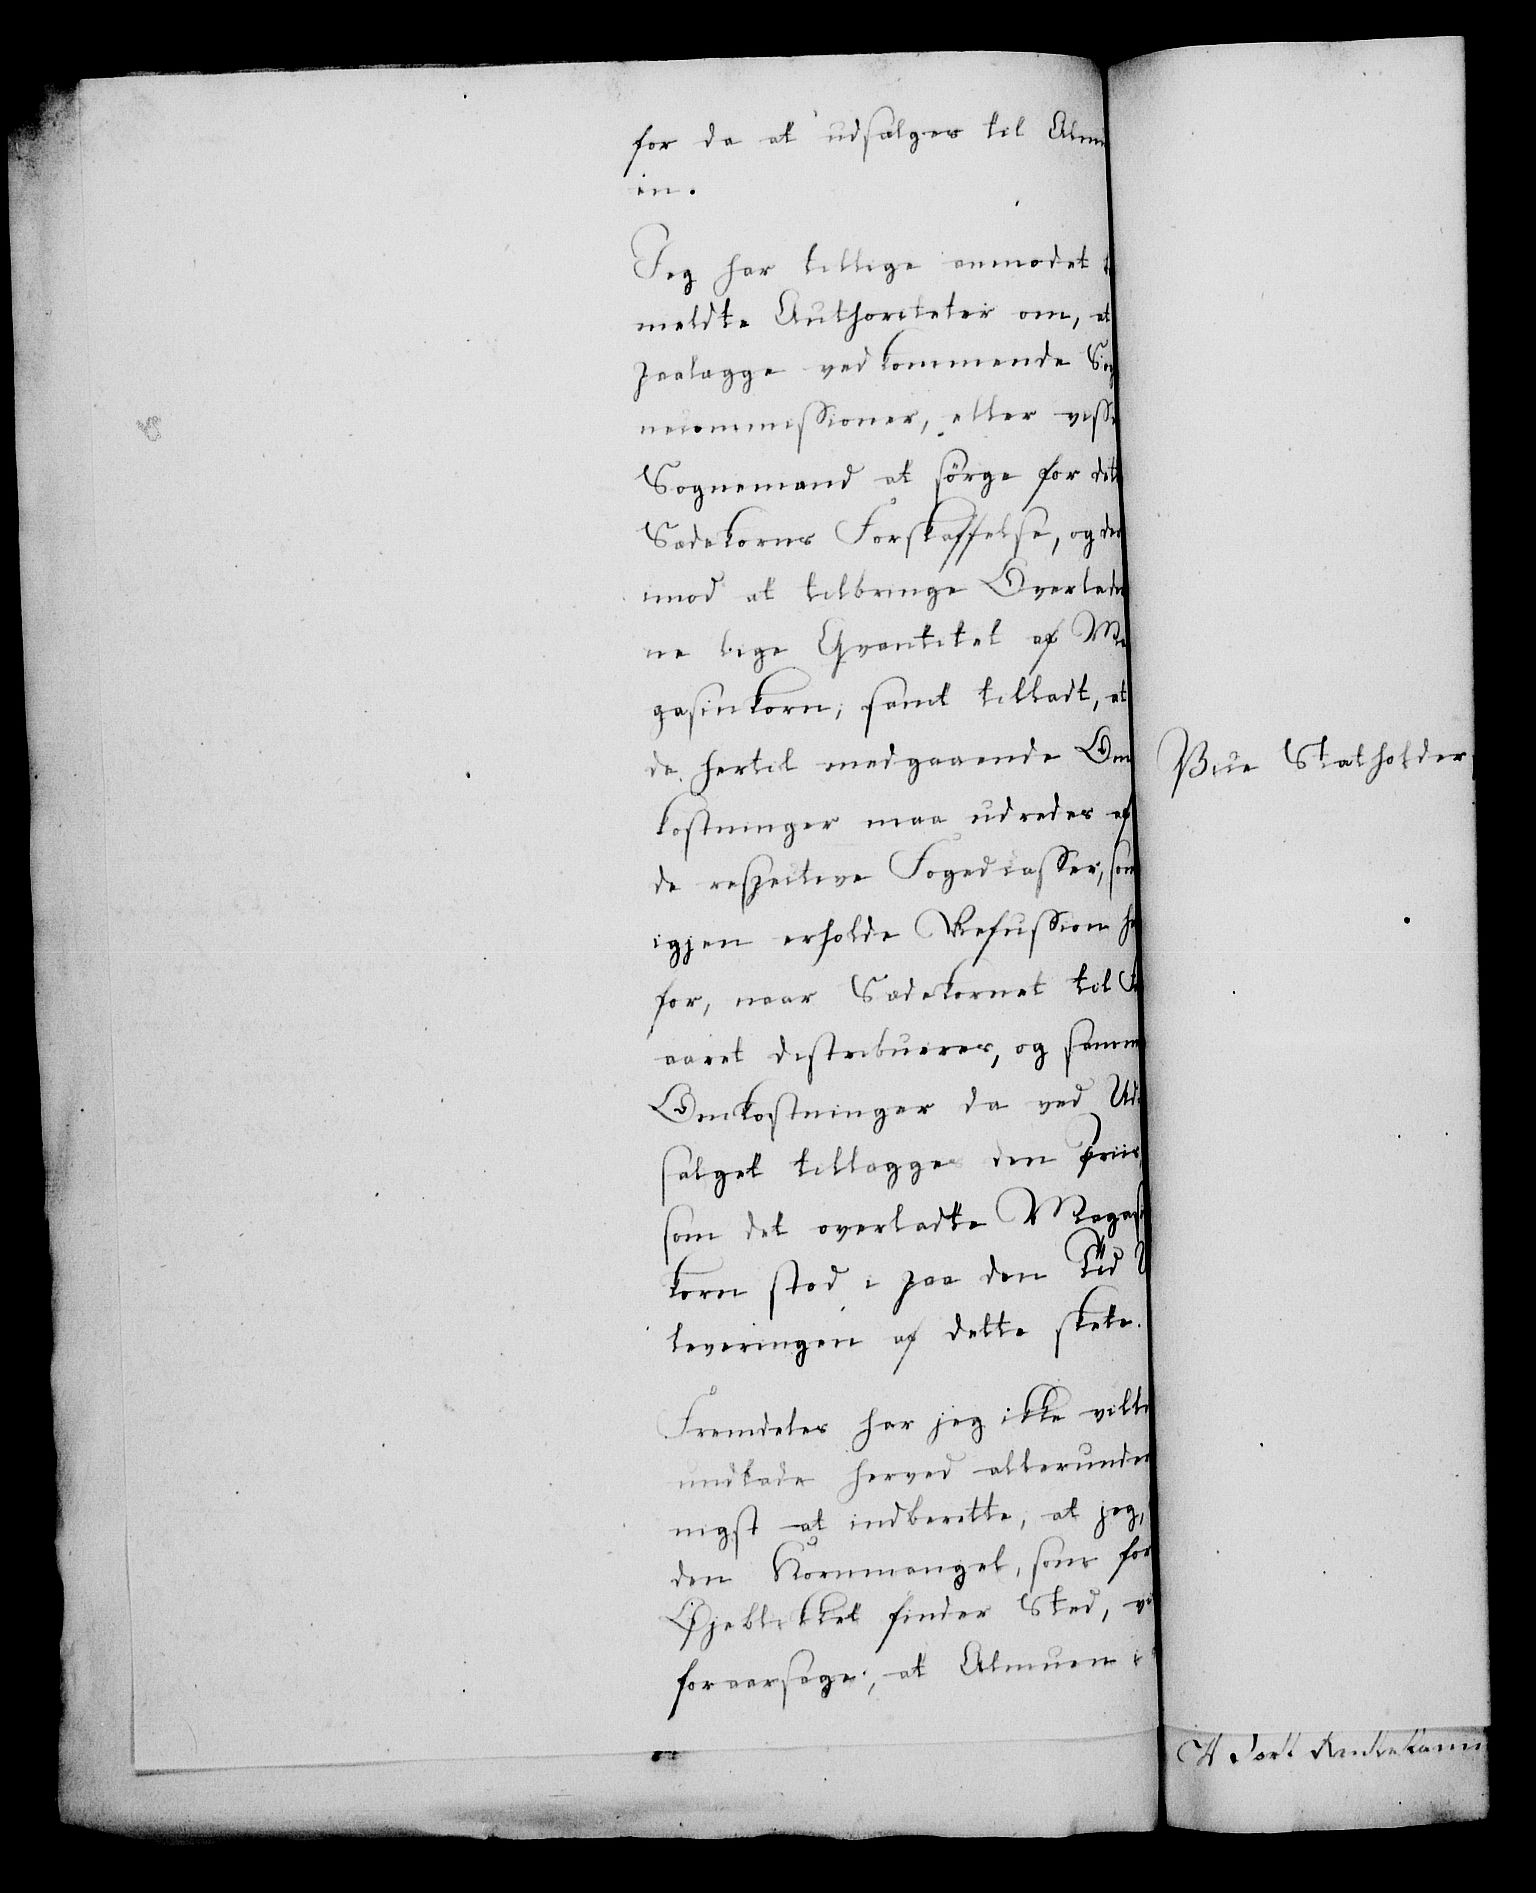 for da at udsælges til Alm
en.
Jeg har tillige anmodet
meldte Authoriteter om, at
paalægge vedkommende Sog
necommissioner, eller visse
Sognemænd at sörge for det
Sædekorns Forskaffelse, og der
imod at tilbringe Overlader
ne lige Qvantitet af Ma
gasinkorn, samt tilladt, at
de hertil medgaaende Om
kostninger maa udredes af
de respective Fogedcasser, som
igjen erholde Refussion her
for, naar Sædekornet til For
aaret distribueres, og samme
Omkostninger da ved Ud
sælget tillægges den Priis,
som det overladte Magasi
korn stod i paa den Tid
leveringen af dette skete.
Fremdeles har jeg ikke villet
undlade herved allerunder
nigst at indberette, at jeg,
den Kornmangel, som for
Öjeblikket finder Sted, vi
foraarsage, at Almuen i
Vice Statholder
Til Det Rentekamm